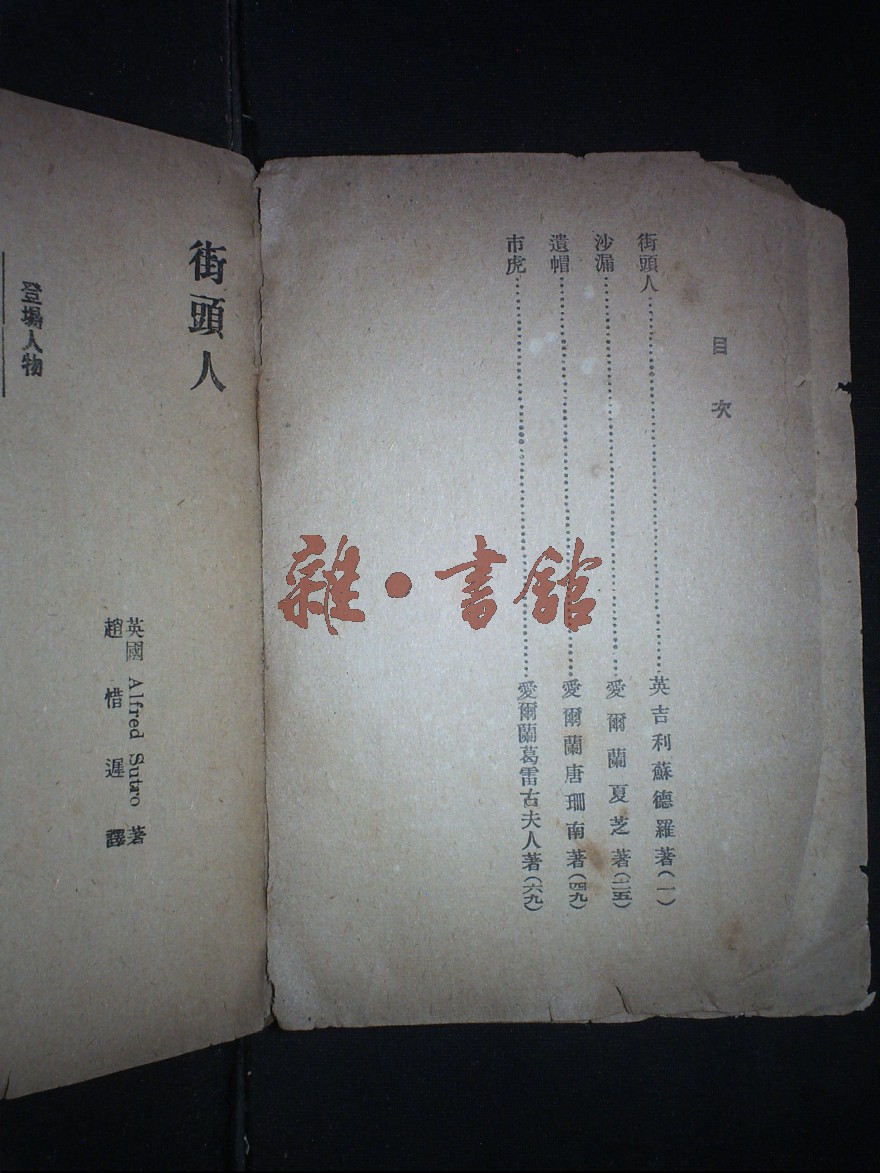 目次
街頭人……英吉利蘇德羅著(一)
沙漏……愛爾蘭夏芝著(二五)
遺帽……愛爾蘭唐珊南著(四九)
市虎……愛爾蘭葛雷古夫人著(六九)
街頭人
英國 Alfred Sutro 著
趙惜遲譯
登場人物
雜·書館